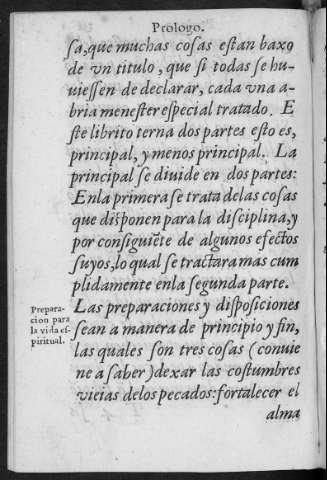 Prologo.
sa, que muchas cosas estan baxo
de vn titulo, que si todas se hu-
uiessen de declarar, cada vna a-
bria menester especial tratado. E
ste librito terna dos partes esto es,
principal, y menos principal. La
principal se diuide en dos partes:
Enla primera se trata delas cosas
que disponen para la disciplina, y
por consiguiẽte de algunos efectos
suyos, lo qual se tractara mas cum
plidamente enla segunda parte.
Prepara-
cion para
la vida es-
piritual.
Las preparaciones y disposiciones
sean a manera de principio y fin,
las quales son tres cosas (conuie
ne a saber) dexar las costumbres
vieias delos pecados: fortalecer el
alma